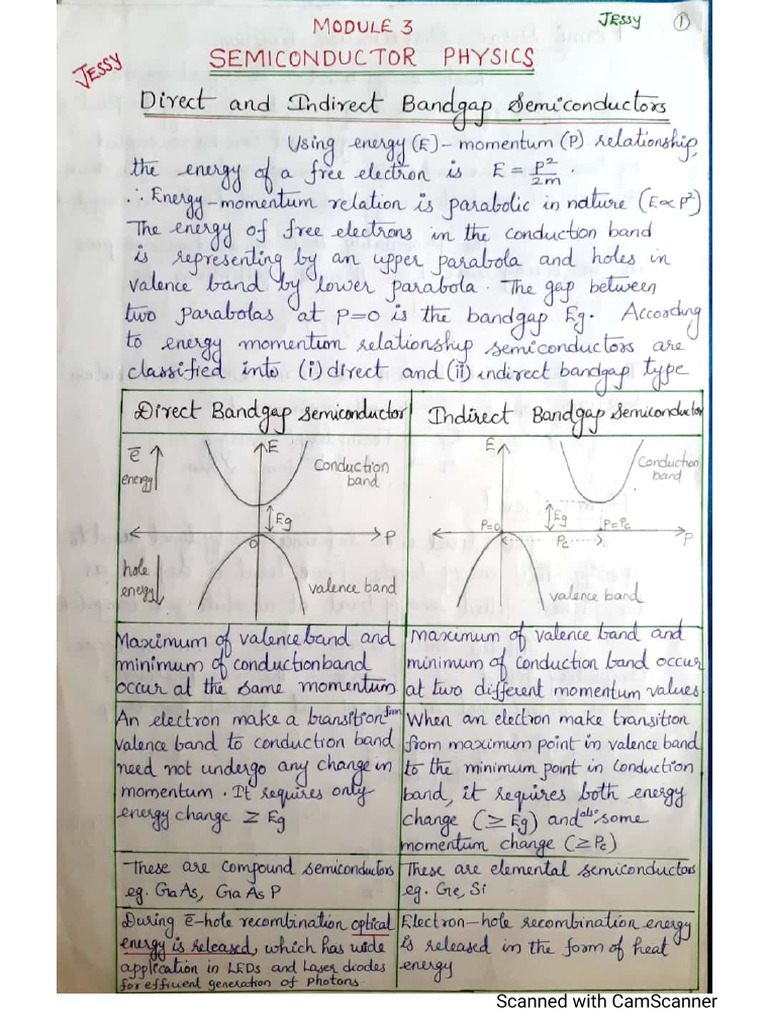 MODULE 3
JESSY
1
JESSY
SEMICONDUCTOR PHYSICS
Direct and Indirect Bandgap Semiconductors
Using energy (E) - momentum (P) relationship,
the energy of a free electron is E = P²/2m .
∴ Energy-momentum relation is parabolic in nature (E∝P²)
The energy of free electrons in the conduction band
is representing by an upper parabola and holes in
valence band by lower parabola. The gap between
two parabolas at P=0 is the bandgap Eg. According
to energy momentum relationship semiconductors are
classified into (i) direct and (ii) indirect bandgap type
Direct Bandgap Semiconductor
ē
energy
E
Conduction
band
Eg
O
P
hole
energy
valence band
Maximum of valence band and
minimum of conduction band
occur at the same momentum
An electron make a transition from
valence band to conduction band
need not undergo any change in
momentum. It requires only
energy change ≥ Eg
These are compound semiconductors
eg. GaAs, GaAsP
During ē-hole recombination optical
energy is released, which has wide
application in LEDs and Laser diodes
for efficient generation of photons.
Indirect Bandgap Semiconductor
E
Conduction
band
Eg
P=0
P=Pc
Pc
P
valence band
Maximum of valence band and
minimum of conduction band occur
at two different momentum values
When an electron make transition
from maximum point in valence band
to the minimum point in conduction
band, it requires both energy
change (≥ Eg) and also some
momentum change (≥ Pc)
These are elemental semiconductors
eg. Ge, Si
Electron-hole recombination energy
is released in the form of heat
energy
Scanned with CamScanner